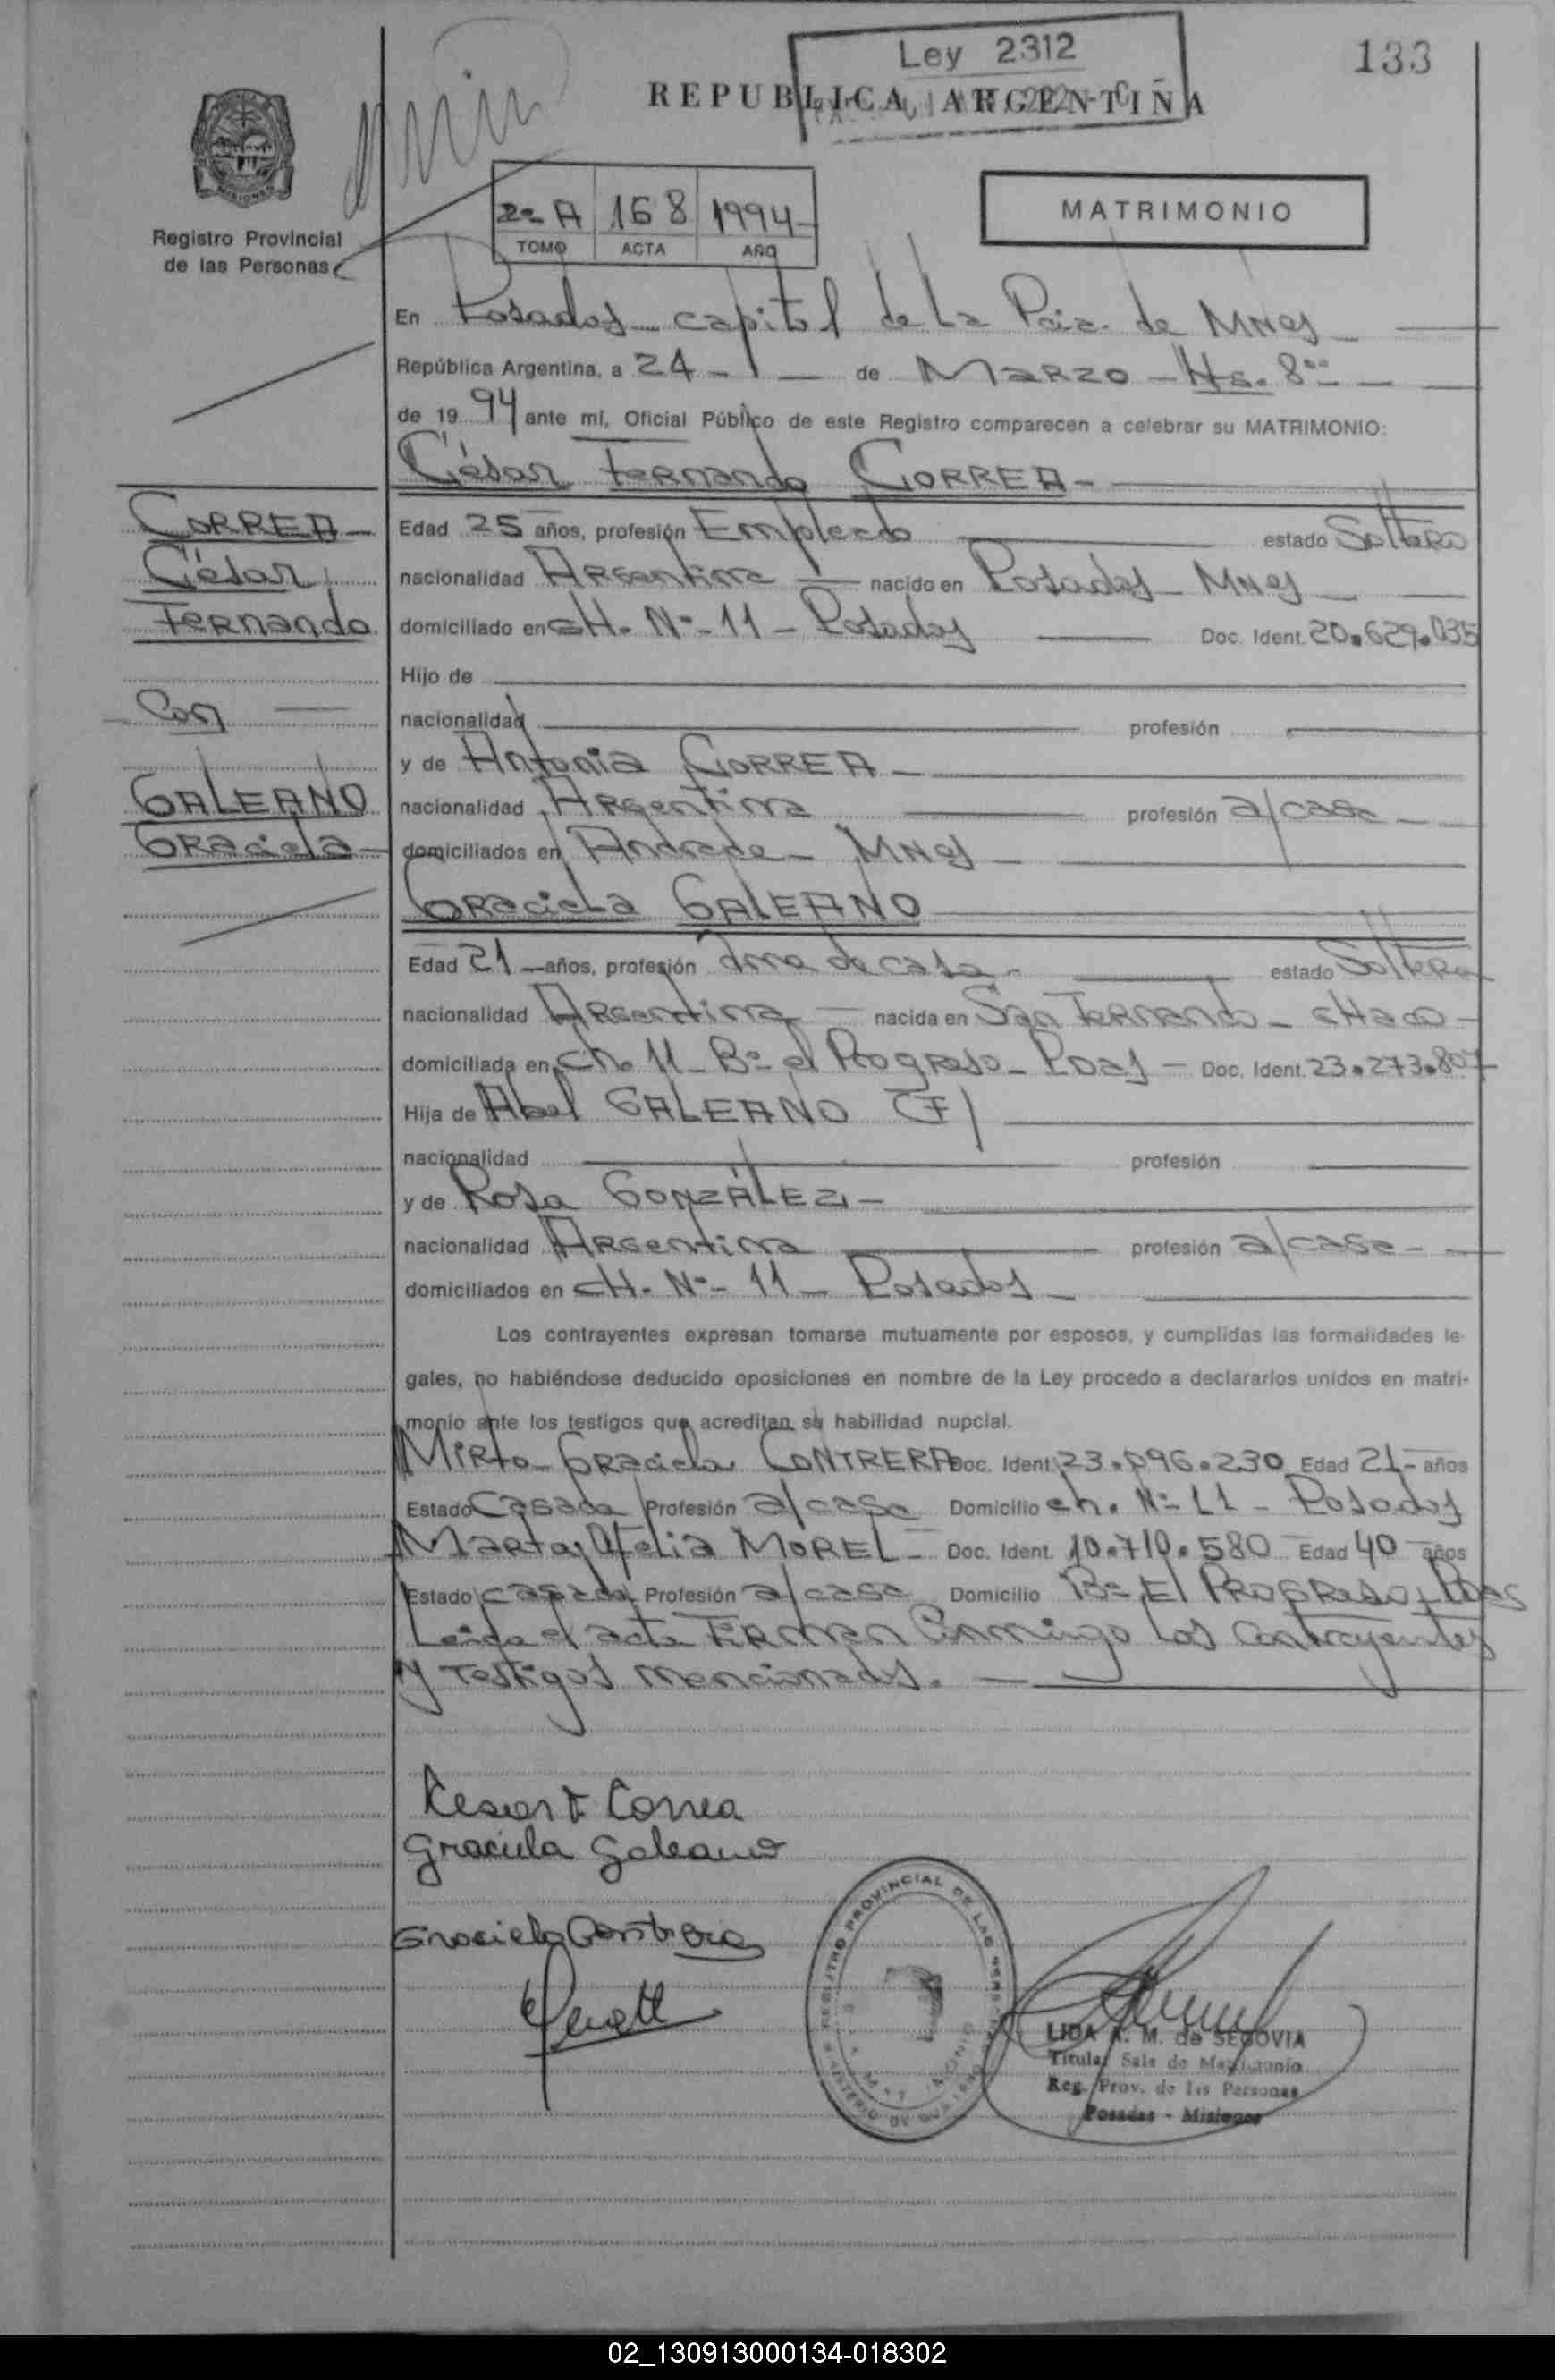 Ley 2312
133
REPUBLICA ARGENTINA
Registro Provincial
de las Personas
2º A 168 1994
TOMO ACTA AÑO
MATRIMONIO
En Posadas capital de la Pcia. de Mnes
República Argentina, a 24 de Marzo Hs. 8
de 1994 ante mí, Oficial Público de este Registro comparecen a celebrar su MATRIMONIO:
César Fernando CORREA
CORREA
César
Fernando
Con
GALEANO
Graciela
Edad 25 años, profesión Empleado estado Soltero
nacionalidad Argentina nacido en Posadas Mnes
domiciliado en CH. Nº 11 - Posadas Doc. Ident. 20.629.035
Hijo de
nacionalidad profesión
y de Antonia CORREA
nacionalidad Argentina profesión a/casa
domiciliados en Andrade - Mnes
Graciela GALEANO
Edad 21 años, profesión Ama de casa estado Soltera
nacionalidad Argentina nacida en San Fernando - CHaco
domiciliada en Ch. 11 - Bº el Progreso - Pdas Doc. Ident. 23.273.807
Hija de Abel GALEANO (F)
nacionalidad profesión
y de Rosa GONZÁLEZ
nacionalidad Argentina profesión a/casa
domiciliados en CH. Nº 11 - Posadas
Los contrayentes expresan tomarse mutuamente por esposos, y cumplidas las formalidades le-
gales, no habiéndose deducido oposiciones en nombre de la Ley procedo a declararlos unidos en matri-
monio ante los testigos que acreditan su habilidad nupcial.
Mirta Graciela CONTRERA Doc. Ident. 23.096.230 Edad 21 años
Estado Casada Profesión a/casa Domicilio ch. Nº 11 - Posadas
Marta Ofelia MOREL Doc. Ident. 10.710.580 Edad 40 años
Estado casada Profesión a/casa Domicilio Bº El Progreso - Pdas
Leida el acta Firman Conmigo los contrayentes
y Testigos mencionados.
Cesar F Correa
Graciela Galeano
Graciela Contrera
REGISTRO PROVINCIAL DE LAS
LIDA M. de SEGOVIA
Titular Sala de Matrimonio
Reg. Prov. de las Personas
Posadas - Misiones
02_130913000134-018302